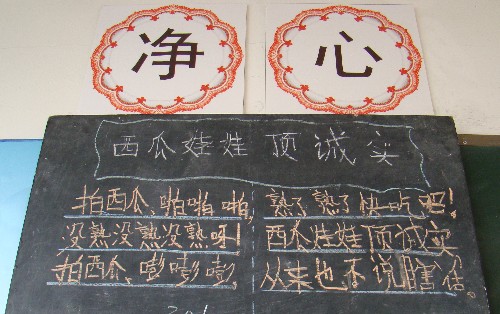 净 心
西瓜娃娃顶诚实
拍西瓜,啪啪啪,
没熟没熟没熟呀!
拍西瓜,嘭嘭嘭,
熟了熟了快吃吧!
西瓜娃娃顶诚实
从来也不说瞎话